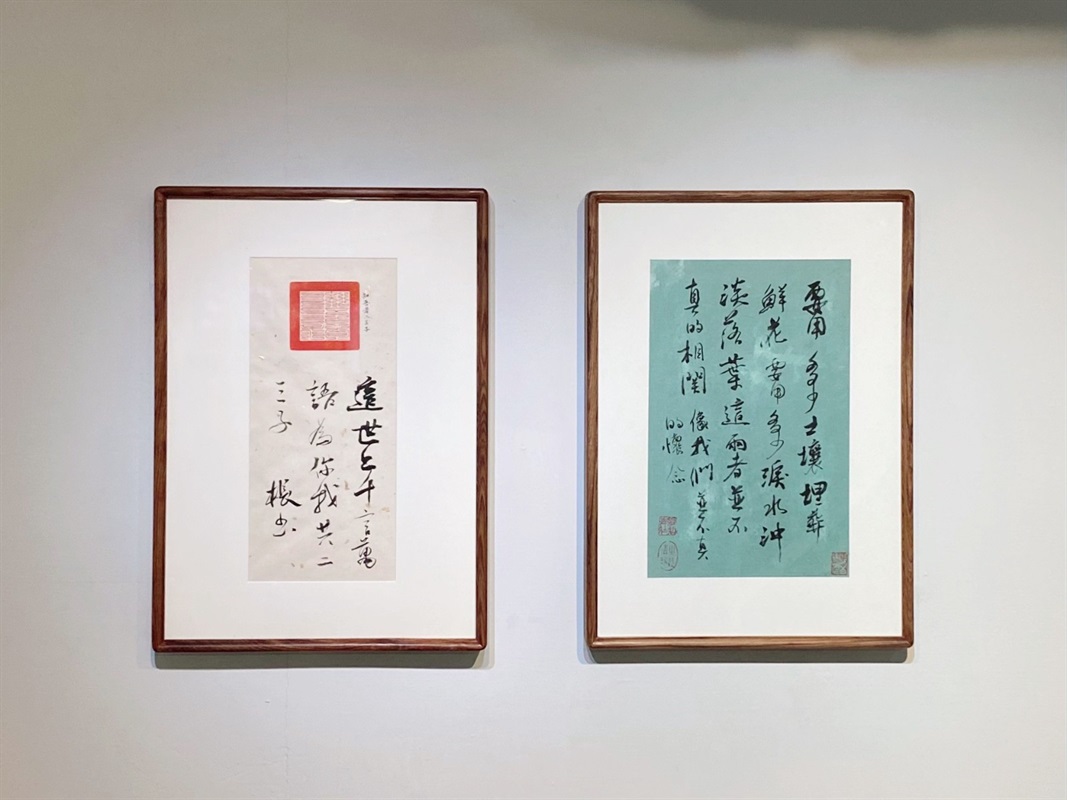 這世上千言萬
語為你我共二
三子
要用多少土壤埋葬
鮮花要用多少淚水沖
淡落葉這兩者並不
真的相關像我們並不真
的懷念